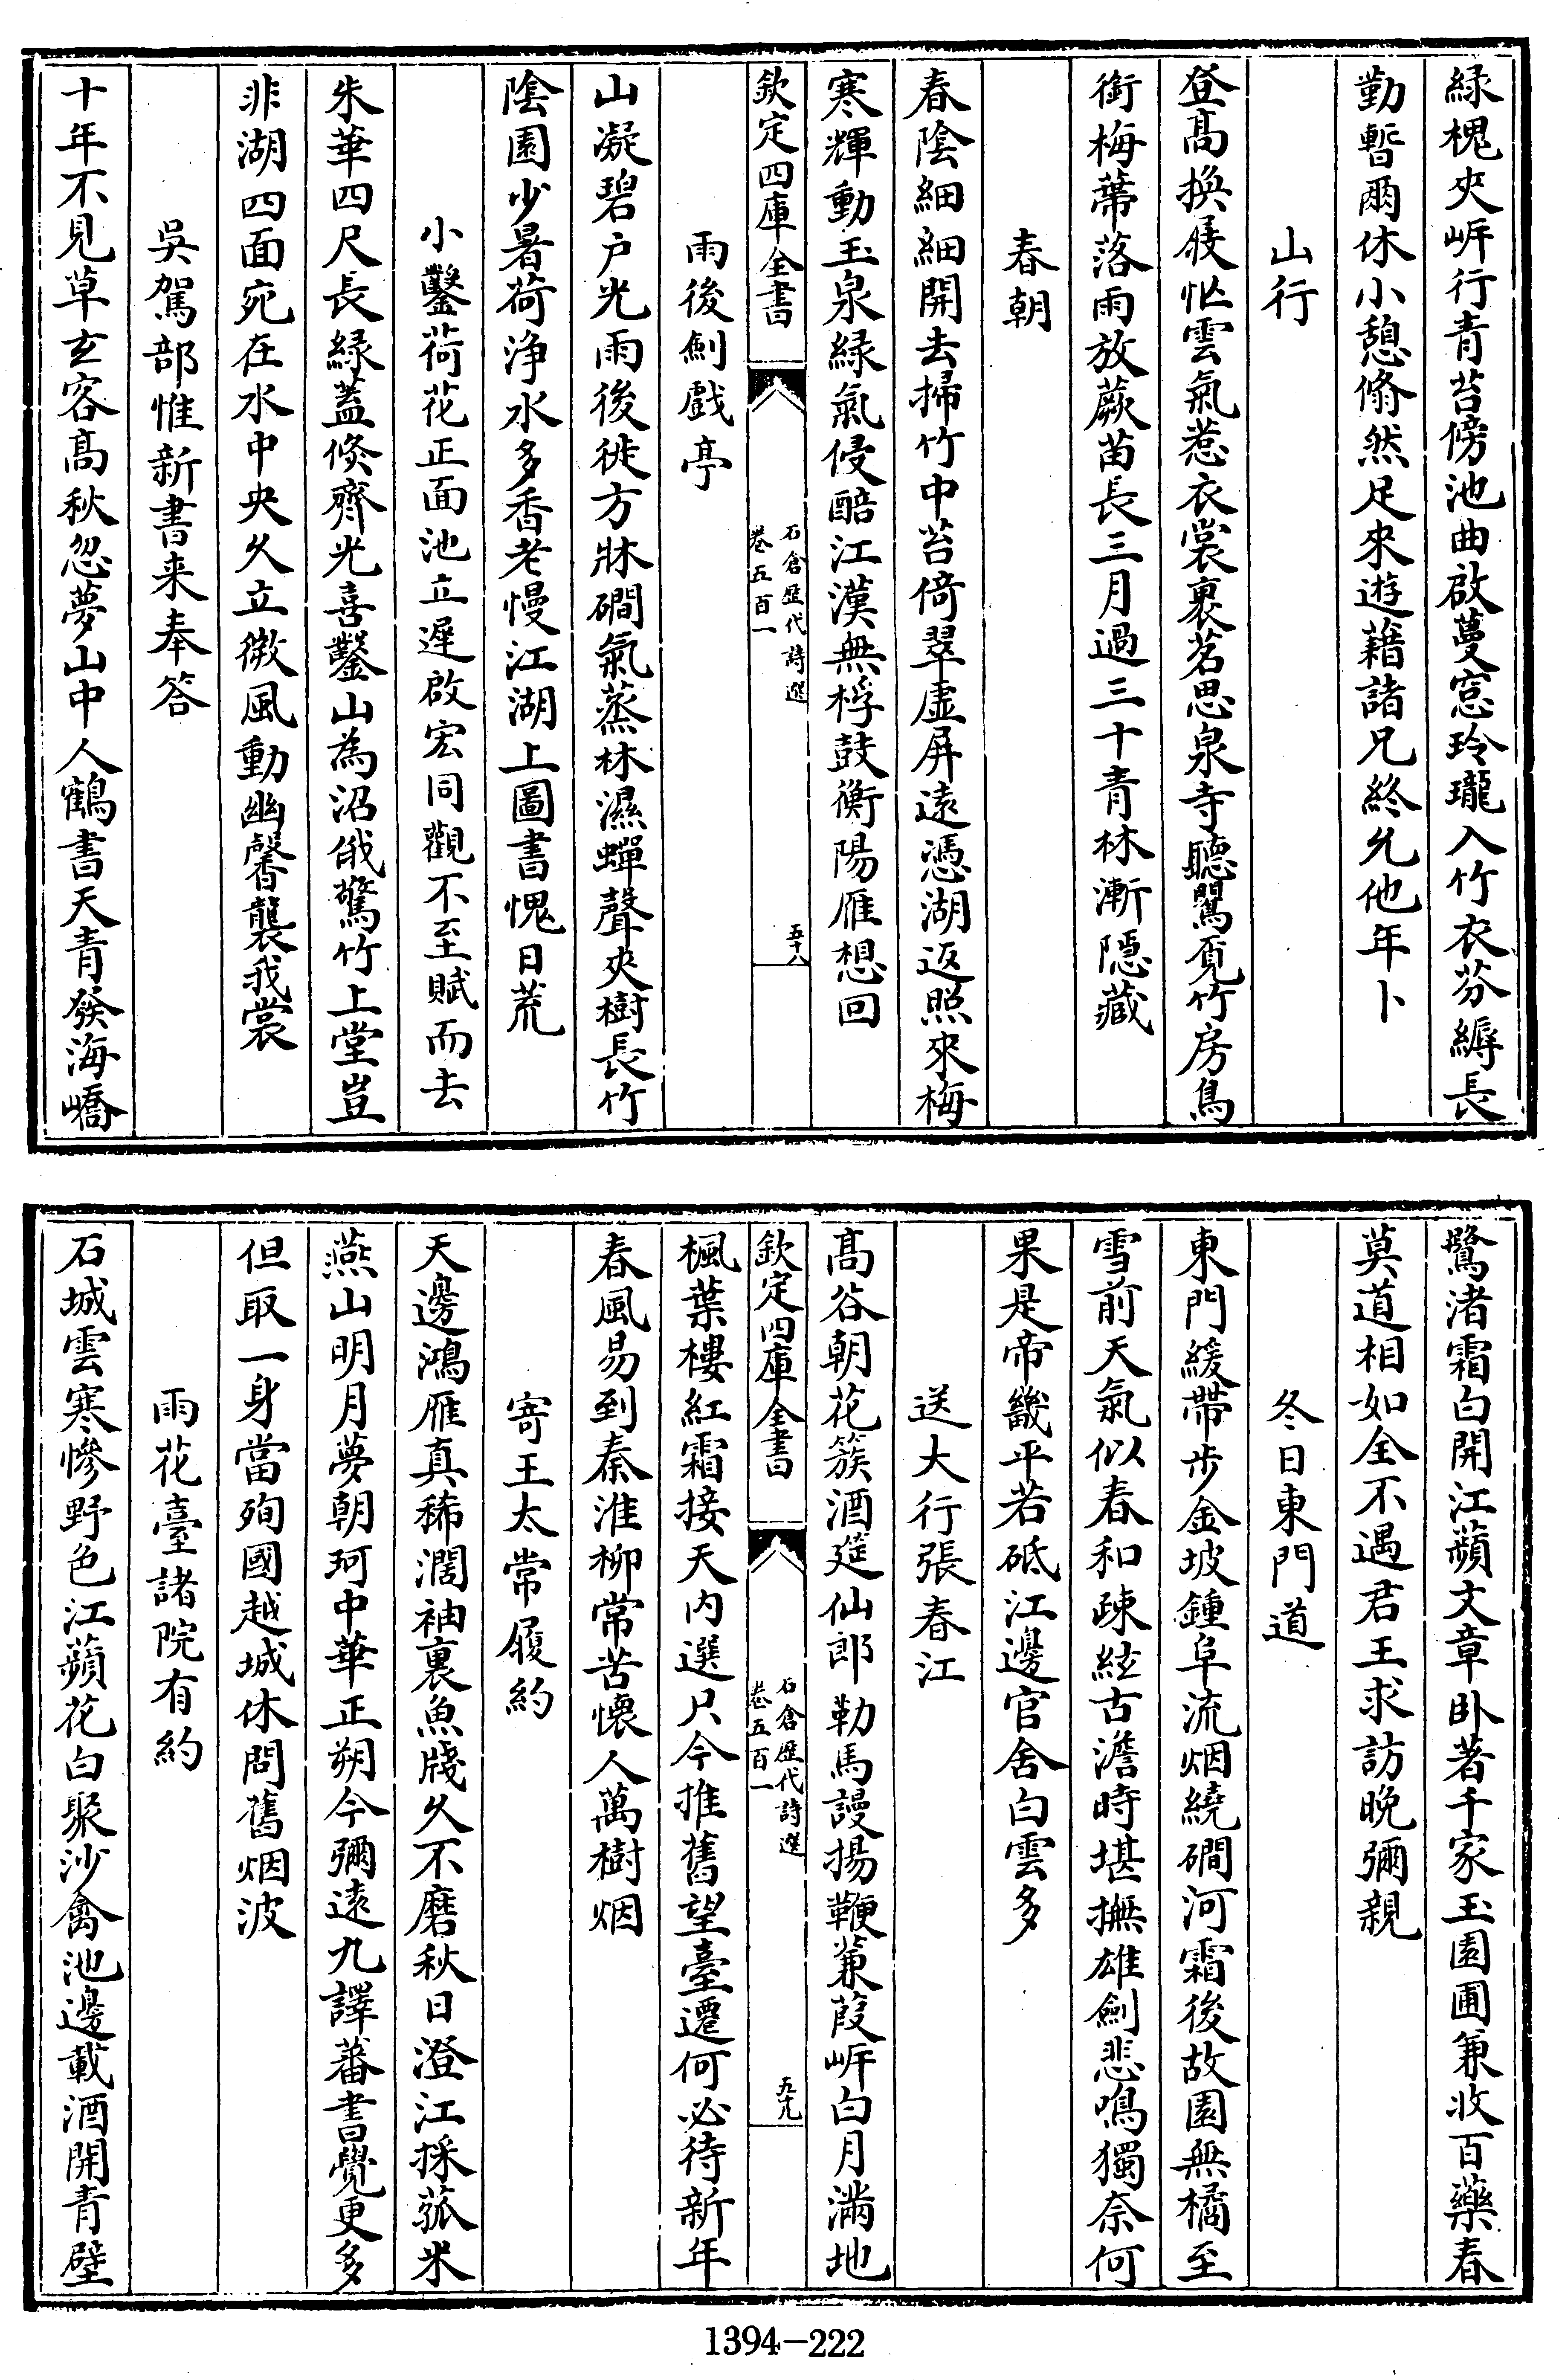 緑槐夾㟁行青苔傍池曲啟蔓窓玲瓏入竹衣芬縟長
勤暫爾休小憩翛然足來遊藉諸兄終允他年卜
山行
登髙換屐怯雲氣惹衣裳裏茗思泉寺聽鸎覔竹房鳥
銜梅蔕落雨放蕨苗長三月過三十青林漸隠藏
春朝
春陰細細開去掃竹中苔倚翠虚屏逺憑湖返照來梅
寒輝動玉泉緑氣侵醅江漢無桴鼓衡陽雁想回
欽定四庫全書
石倉歴代詩選
卷五百一
五十八
雨後劍戲亭
山凝碧户光雨後徙方牀磵氣蒸林濕蟬聲夾樹長竹
陰園少暑荷浄水多香老慢江湖上圖書愧日荒
小鑿荷花正面池立遲啟宏同觀不至賦而去
朱華四尺長緑葢倐齊光喜鑿山為沼俄驚竹上堂豈
非湖四面宛在水中央久立微風動幽馨襲我裳
吳駕部惟新書来奉答
十年不見草玄客髙秋忽夢山中人鶴書天青發海嶠
鷺渚霜白開江蘋文章卧著千家玉園圃兼收百藥春
莫道相如全不遇君王求訪晚彌親
冬日東門道
東門緩帶步金坡鍾阜流烟繞磵河霜後故園無橘至
雪前天氣似春和疎絃古澹時堪撫雄劍悲鳴獨奈何
果是帝畿平若砥江邊官舍白雲多
送大行張春江
髙谷朝花簇酒筵仙郎勒馬謾揚鞭蒹葭㟁白月滿地
欽定四庫全書
石倉歴代詩選
卷五百一
五十九
楓葉樓紅霜接天内選只今推舊望臺遷何必待新年
春風易到秦淮柳常苦懷人萬樹烟
寄王太常履約
天邊鴻雁真稀濶袖裏魚牋久不磨秋日澄江採菰米
燕山明月夢朝珂中華正朔今彌逺九譯蕃書覺更多
但取一身當殉國越城休問舊烟波
雨花臺諸院有約
石城雲寒慘野色江蘋花白聚沙禽池邊載酒開青壁
1394-222